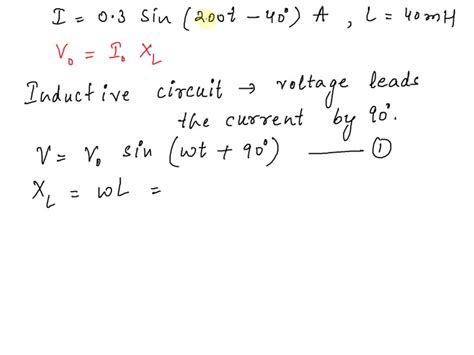 I = 0.3 sin (200t - 40°) A , L = 40mH
V₀ = I₀ X_L
Inductive circuit → voltage leads
the current by 90°.
V = V₀ sin (ωt + 90°) —— ①
X_L = ωL =